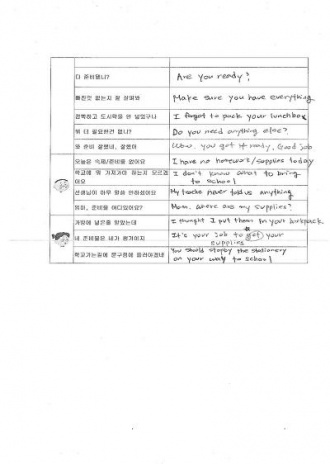 다 준비됐니?
Are you ready?
빠진것 없는지 잘 살펴봐
Make sure you have everything
깜박하고 도시락을 안 넣었구나
I forgot to pack your lunchbox
뭐 더 필요한건 없니?
Do you need anything else?
와 준비 잘했네, 잘했어
Wow. you got it ready, Good job
오늘은 숙제/준비물 없어요
I have no homework/supplies today
학교에 뭐 가져가야 하는지 모르겠
어요
I don't know what to bring
to school
선생님이 아무 말씀 안하셨어요
My teacher never told us anything
엄마, 준비물 어디있어요?
Mom. where are my supplies?
가방에 넣은줄 알았는데
I thought I put them in your backpack
네 준비물은 네가 챙겨야지
It's your job to get your
supplies
학교가는길에 문구점에 들러야겠네
You should stop by the stationery
on your way to school